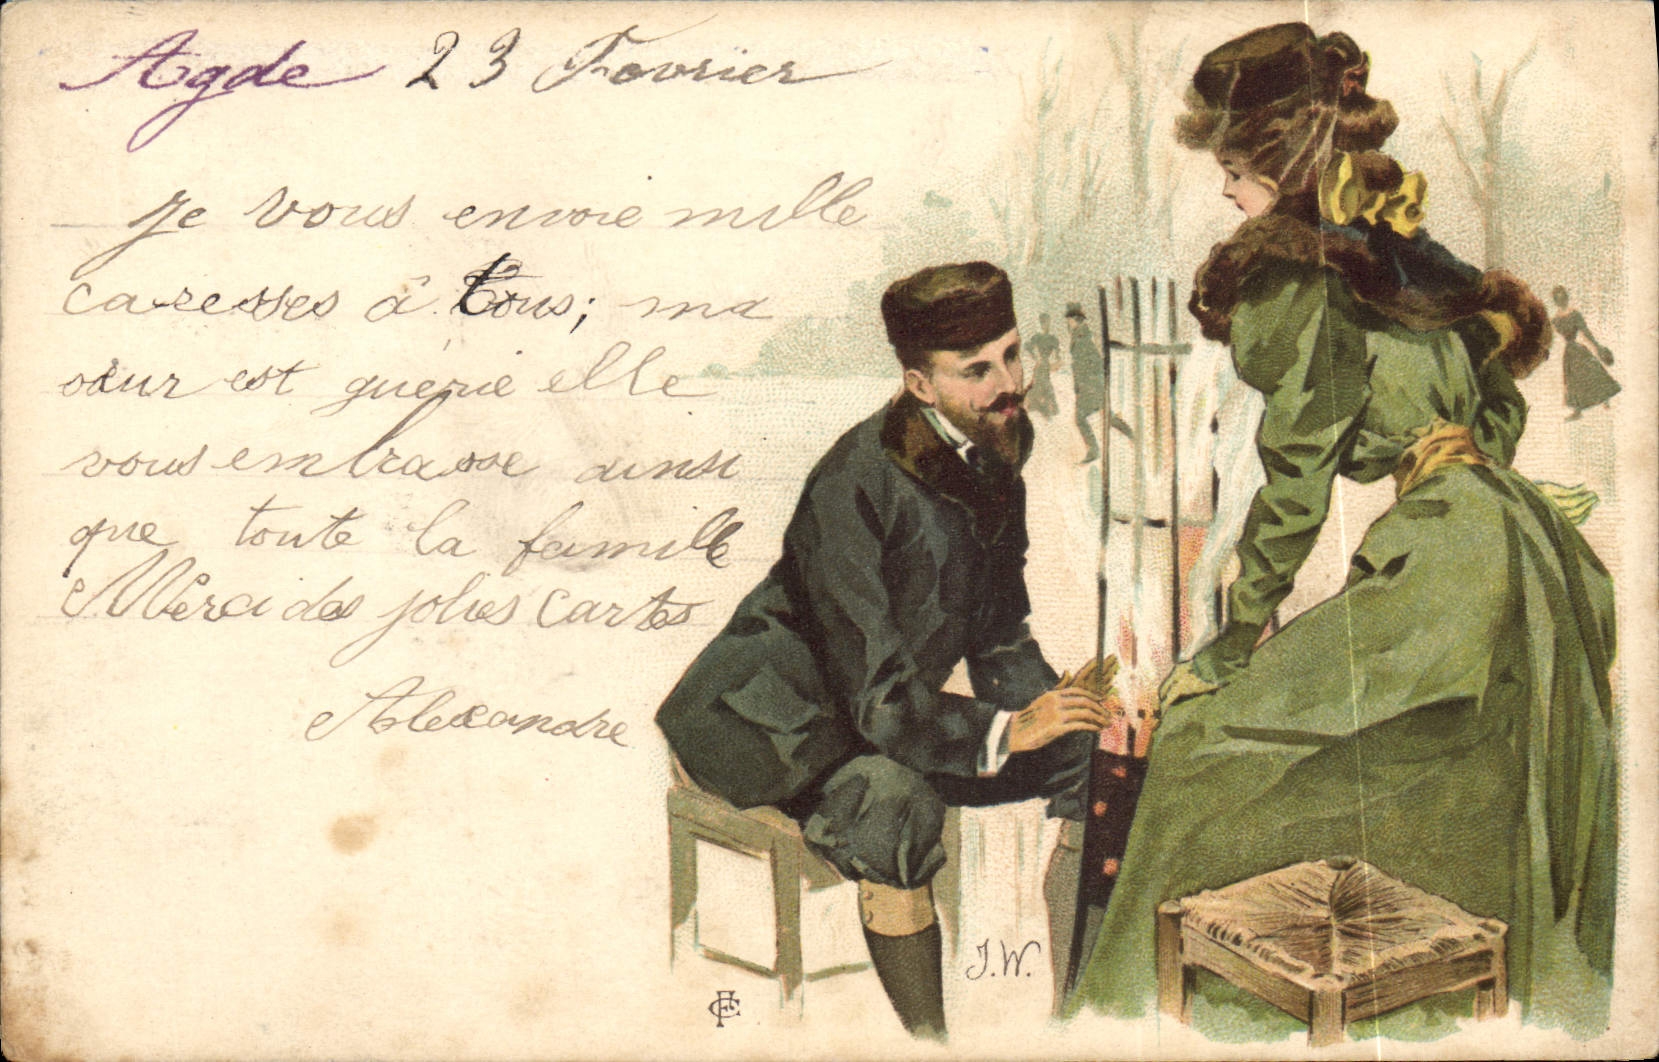 Agde 23 Fevrier
Je vous envoie mille
caresses à tous; ma
sœur est guerie elle
vous embrasse ainsi
que toute la famille
Merci des jolies cartes
Alexandre
J.W.